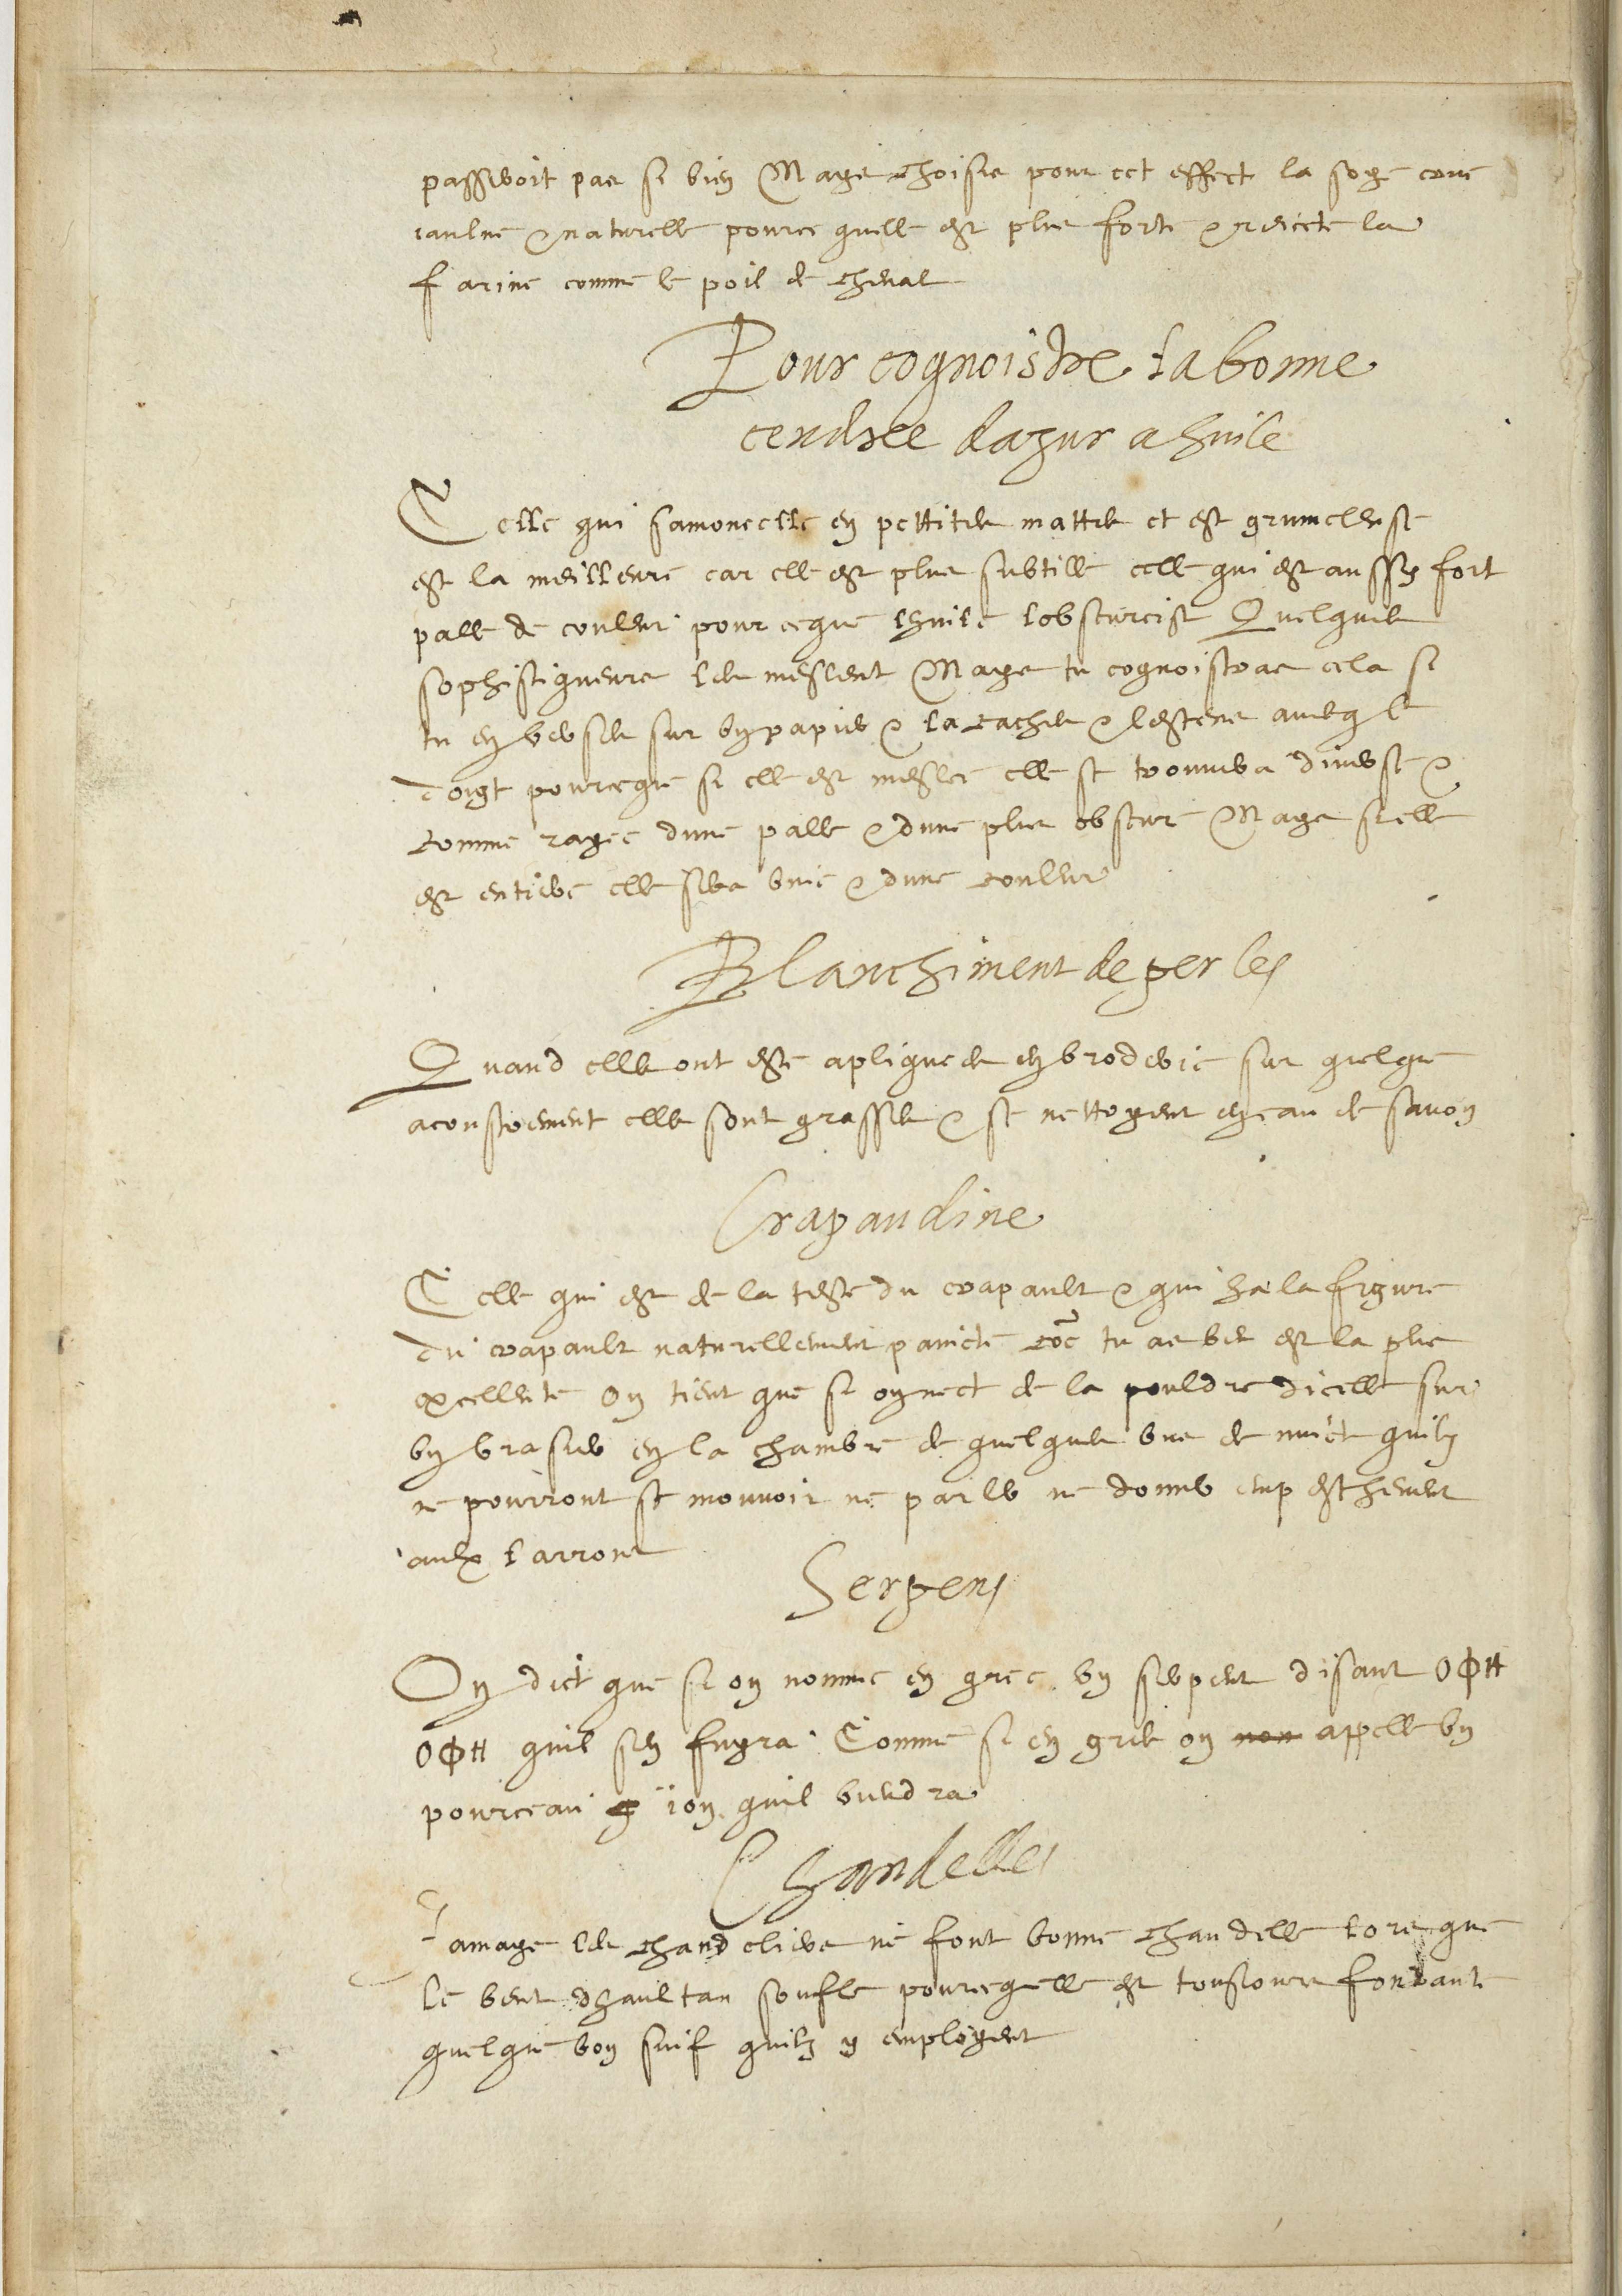 passeroit pas si bien Mays choisis pour cet effect la soye crue
jaulne & naturelle pource quelle est plus forte & rejecte la
farine comme le poil de cheval
Pour cognoistre la bonne
cendree dazur a huile
Celle qui samoncelle en pettites mottes et est grumeleuse
est la meilleure car elle est plus subtille celle qui est aussy fort
palle de couleur pource que lhuile lobscurcist Quelques
sophistiqueurs les meslent Mays tu cognoistras cela si
tu en verses sur un papier & la taches & lestens avecq le
doigt pource que si elle est meslee elle se trouvera diverse &
comme rayee dune palle & dune plus obscure Mays si elle
est entiere elle sera unie & dune couleur
Blanchiment de perles
Quand elles ont este apliquees en broderie sur quelque
acoustrement elles sont grasses & se nettoyent en eau de savon
Crapaudine
Celle qui est de la teste du crapault & qui ha la figure
du crapault naturellement paincte coe tu as veu est la plus
excellente On tient que si on mect de la pouldre dicelle sur
un brasier en la chambre de quelques uns de nuict quilz
ne pourront se mouvoir ne parler ne donner empeschement
aulx larrons
Serpens
On dict que si on nomme en grec un serpent disant ΟΦΗ
ΟΦΗ quil sen fuyra Comme si en grec on non appelle un
pourceau ion quil viendra
Chandelles
Jamays les chandeliers ne font bonne chandelle lors que
le vent dhaultan soufle pource quelle est tousjours fondante
quelque bon suif quilz y employent